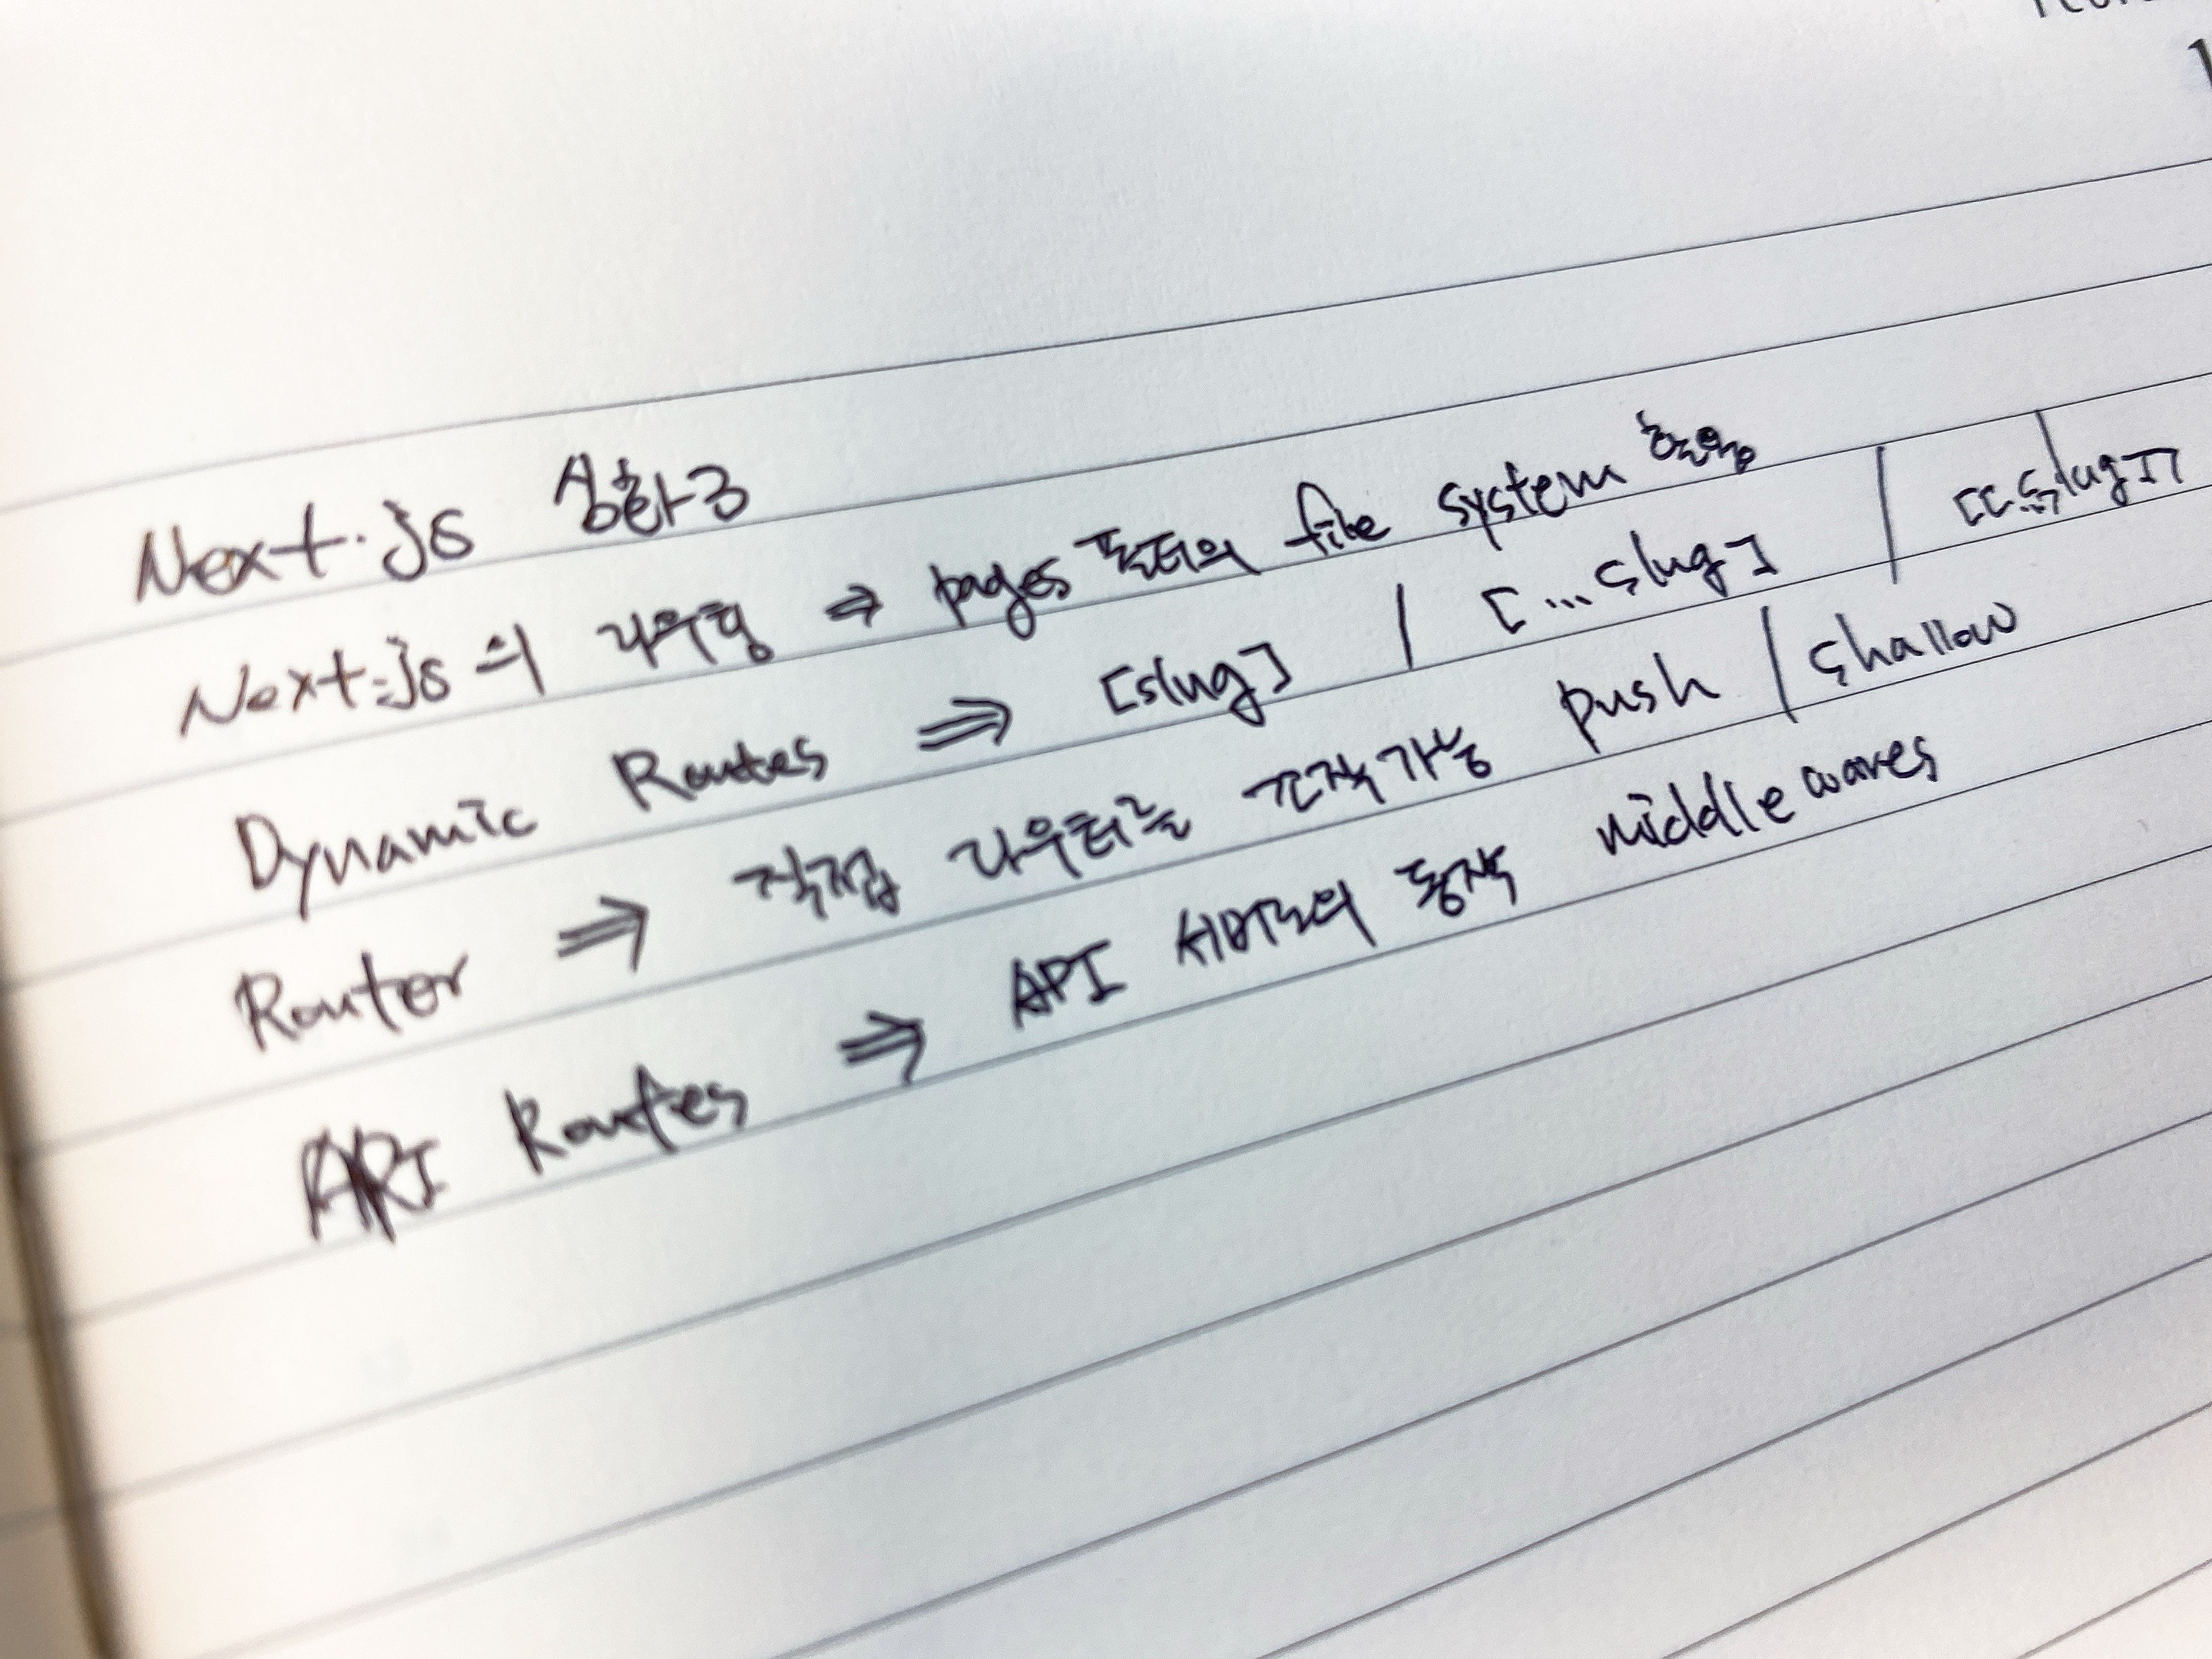 Next.js 심화3
Next.js의 라우팅 ⇒ pages 폴더의 file system 활용
Dynamic Routes ⇒ [slug] / [...slug] / [[...slug]]
Router ⇒ 직접 라우터를 조작가능 push / shallow
API Routes ⇒ API 서버로의 동작 middlewares